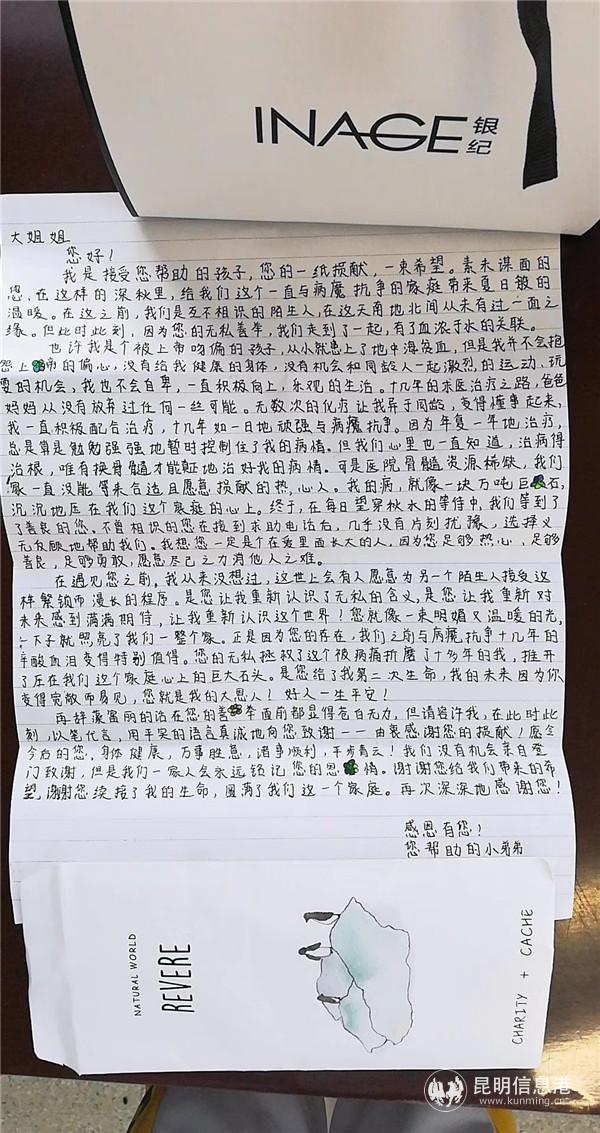 INAGE 银纪
大姐姐
您好！
我是接受您帮助的孩子，您的一纸损献，一束希望。素未谋面的
您，在这样的深秋里，给我们这个一直与病魔抗争的家庭带来夏日般的
温暖。在这之前，我们是互不相识的陌生人，在这天南地北间从未有过一面之
缘。但此时此刻，因为您的无私善举，我们走到了一起，有了血浓于水的关联。
也许我是个被上帝吻偏的孩子，从小就患上了地中海贫血，但是我并不会抱
怨上帝的偏心，没有给我健康的身体，没有机会和同龄人一起激烈的运动、玩
耍的机会，我也不会自卑，一直积极向上，乐观的生活。十几年的求医治疗之路，爸爸
妈妈从没有放弃过任何一丝可能。无数次的化疗让我异于同龄，变得懂事起来，
我一直积极配合治疗，十几年如一日地顽强与病魔抗争。因为年复一年地治疗，
总是算是勉勉强强地暂时控制住了我的病情。但我们心里也一直知道，治病得
治根，唯有换骨髓才能正地治好我的病情。可是医院骨髓资源稀缺，我们
家一直没能等来合适且愿意损献的热心人。我的病，就像一块万吨巨石，
沉沉地压在我们这个家庭的心上。终于，在每日望穿秋水的等待中，我们等到了
了善良的您。不曾相识的您在接到求助电话后，几乎没有片刻犹豫，选择义
无反顾地帮助我们。我想您一定是个在爱里面长大的人，因为您足够热心，足够
善良，足够勇敢，愿意尽己之力消他人之难。
在遇见您之前，我从来没想过，这世上会有人愿意为另一个陌生人接受这
样繁琐而漫长的程序。是您让我重新认识了无私的含义，是您让我重新对
未来感到满满期待，让我重新认识这个世界！您就像一束明媚又温暖的光，
一下子就照亮了我们一整个家。正是因为您的存在，我们之前与病魔抗争十几年的
辛酸血泪变得特别值得。您的无私拯救了这个被病痛折磨了十多年的我，推开
了压在我们这个家庭心上的巨大石头。是您给了我第二次生命，我的未来因为你
变得宽敞而易见，您就是我的大恩人！好人一生平安！
再辞藻富丽的话在您的善举面前都显得苍白无力，但请容许我，在此时此
刻，以笔代言，用平实的语言真诚地向您致谢——由衷感谢您的损献！愿今
今后的您，身体健康，万事胜意，诸事顺利，平步青云！我们没有机会亲自登
门致谢，但是我们一家人会永远铭记您的恩情。谢谢您给我们带来的希
望，谢谢您续接了我的生命，圆满了我们这一个家庭。再次深深地感谢您！
感恩有您！
您帮助的小弟弟
NATURAL WORLD
REVERE
CHARITY + CACHE
昆明信息港
www.kunming.cn